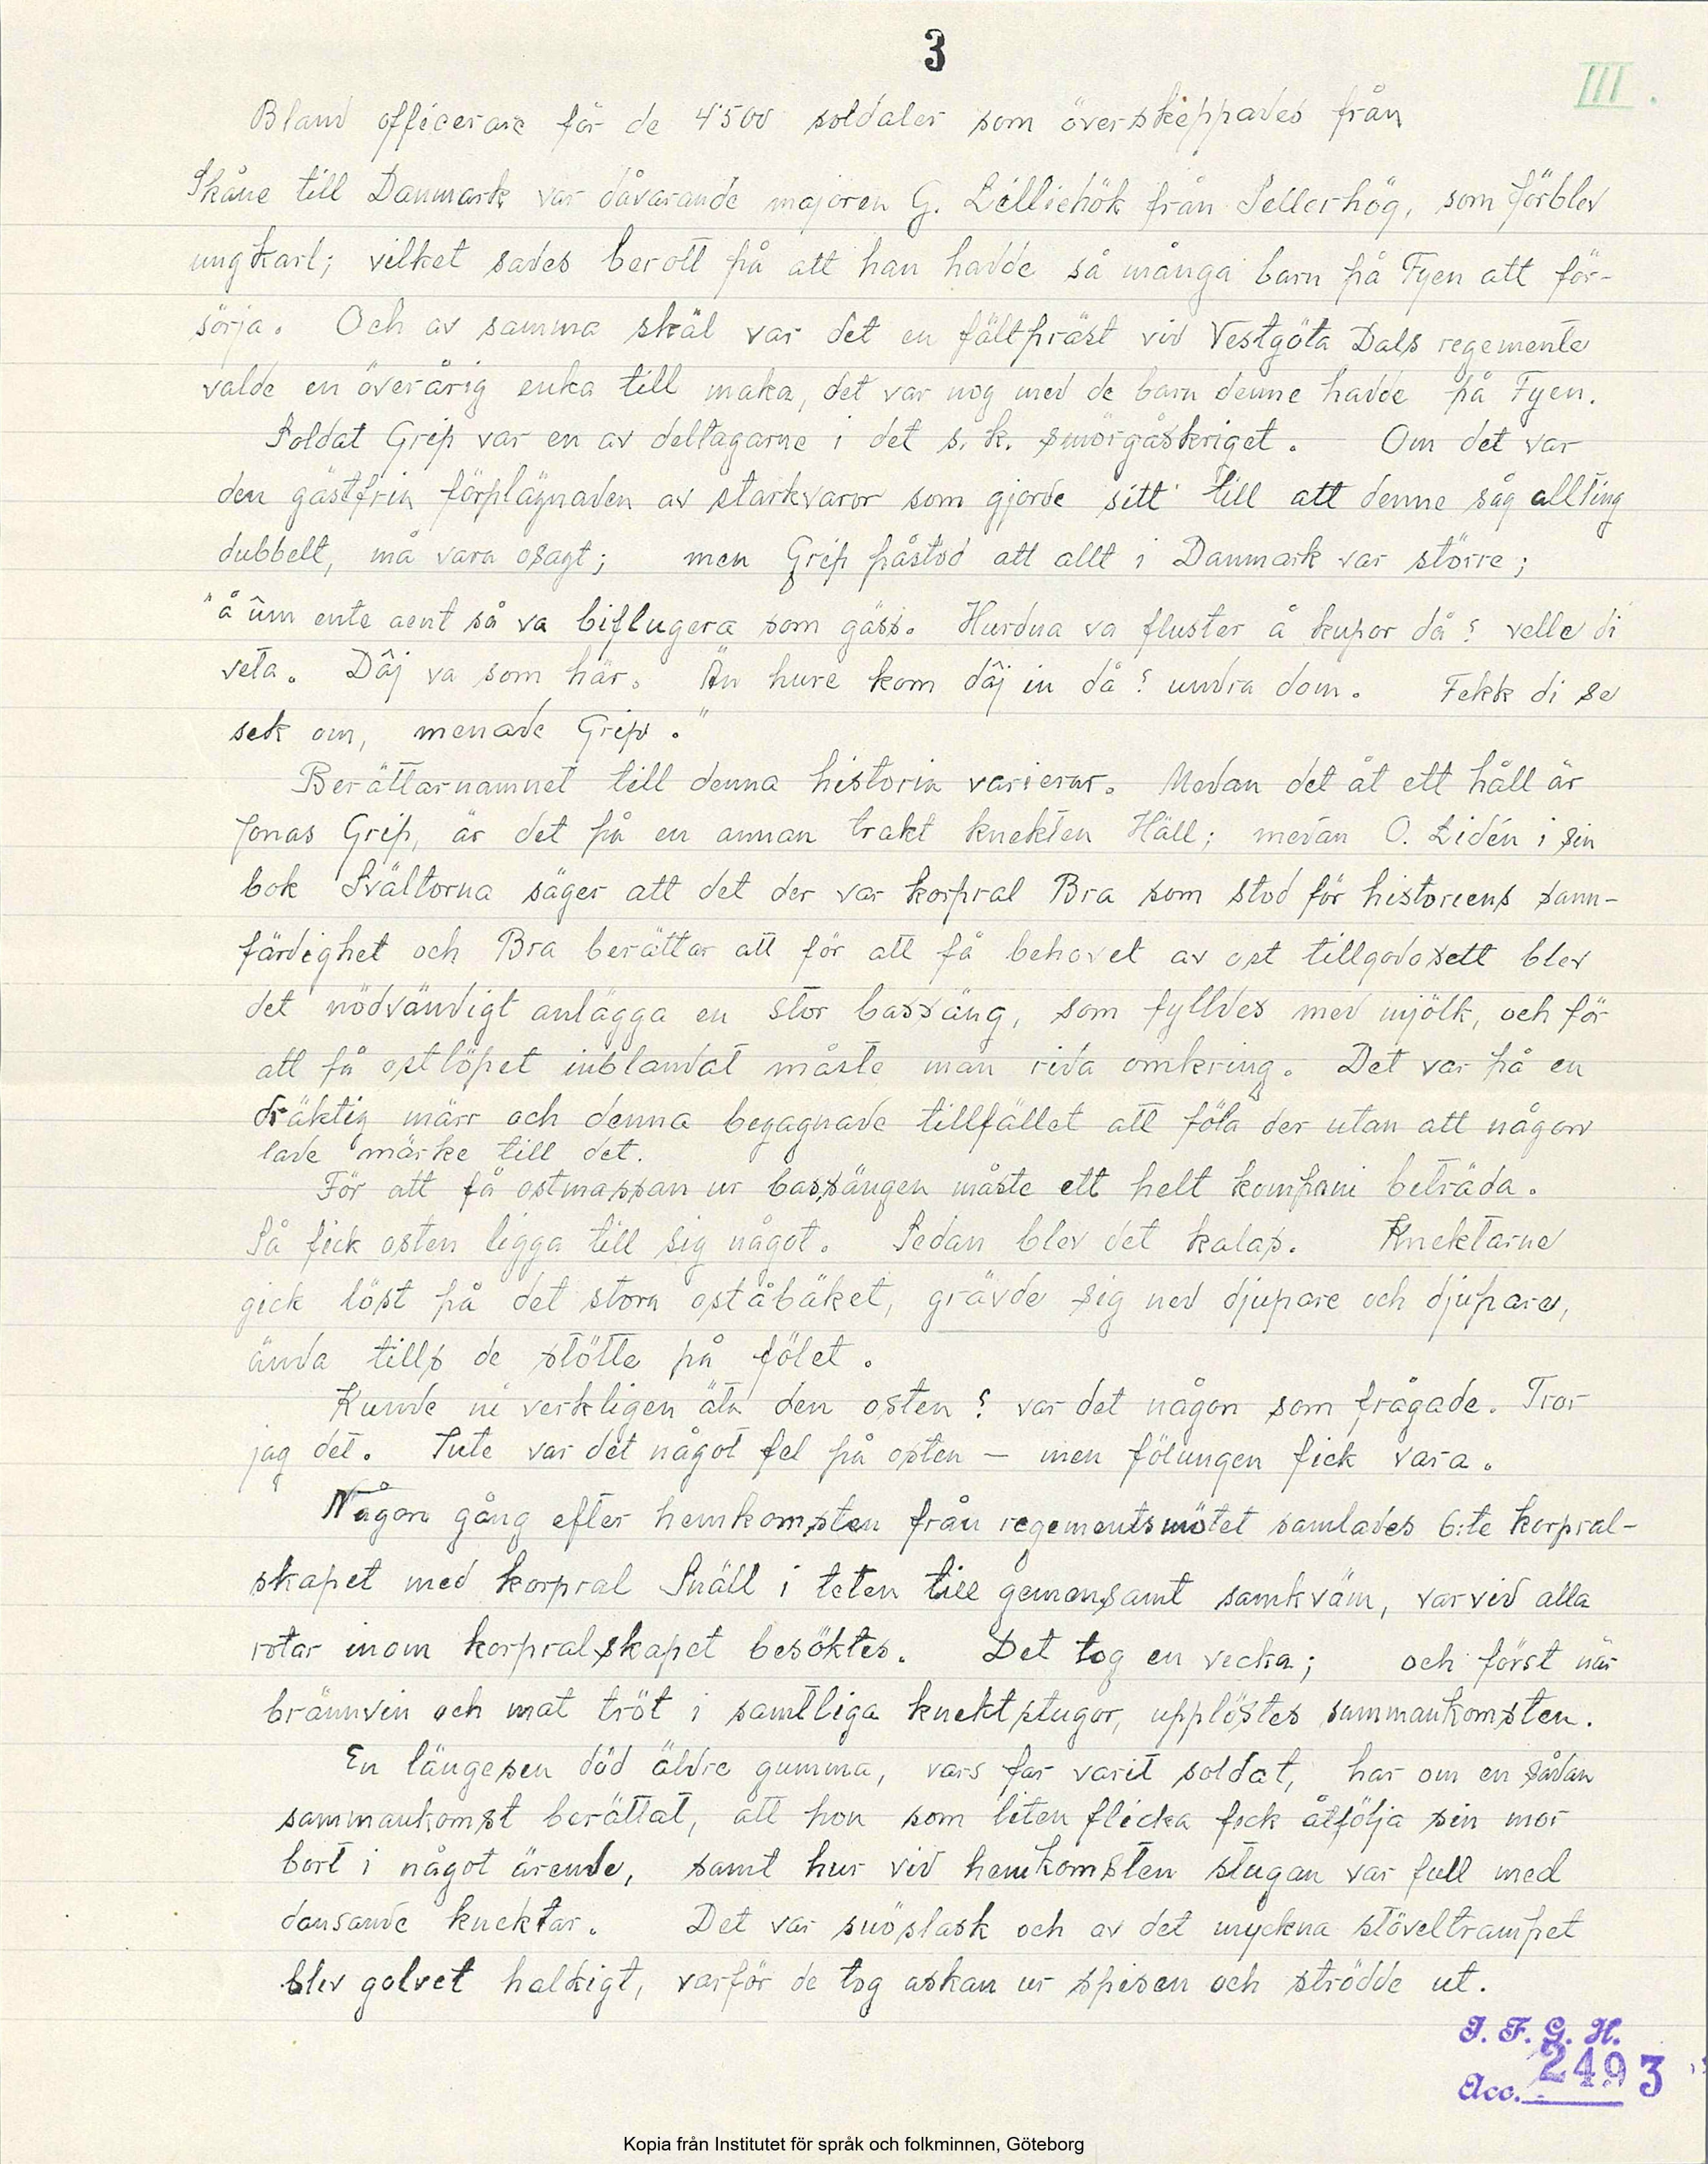 3
III.
Bland officerare för de 4500 soldater som överskeppades från
Skåne till Danmark var dåvarande majoren G. Lilliehök från Sellerhög, som förblev
ungkarl; vilket sades berott på att han hadde så många barn på Fyen att för-
sörja. Och av samma skäl var det en fältpräst vid Vestgöta Dals regemente
valde en överårig enka till maka, det var nog med de barn denne hadde på Fyen.
Soldat Grip var en av deltagarne i det s. k. smörgåskriget. Om det var
den gästfria förplägnaden av starkvaror som gjorde sitt till att denne såg allting
dubbelt, må vara osagt; men Grip påstod att allt i Danmark var större;
"å ûm ente aent så va biflugera som gäss. Hurdna va fluster å kupor då? velle di
veta. Dâj va som här. Än hure kom dâj in då? undra dom. Fekk di se
sek om, menade Grip."
Berättarnamnet till denna historia varierar. Medan det åt ett håll är
Jonas Grip, är det på en annan trakt knekten Häll; medan O. Lidén i sin
bok Svältorna säger att det der var korpral Bra som stod för historiens sann-
färdighet och Bra berättar att för att få behovet av ost tillgodosett blev
det nödvändigt anlägga en stor bassäng, som fylldes med mjölk, och för
att få ostlöpet inblandat måste man rida omkring. Det var på en
dräktig märr och denna begagnade tillfället att föla der utan att någon
lade märke till det.
För att få ostmassan ur bassängen måste ett helt kompani beträda.
Så fick osten ligga till sig något. Sedan blev det kalas. Knektarne
gick löst på det stora ostabäket, grävde sig ned djupare och djupare,
ända tills de stötte på fölet.
Kunde ni verkligen äta den osten? var det någon som frågade. Tror
jag det. Inte var det något fel på osten – men fölungen fick vara.
Någon gång efter hemkomsten från regementsmötet samlades 6:te korpral-
skapet med korpral Snäll i teten till gemensamt samkväm, varvid alla
rotar inom korpralskapet besöktes. Det tog en vecka; och först när
brännvin och mat tröt i samtliga knektstugor, upplöstes sammankomsten.
En längesen död äldre gumma, vars far varit soldat, har om en sådan
sammankomst berättat, att hon som liten flicka fick åtfölja sin mor
bort i något ärende, samt hur vid hemkomsten stugan var full med
dansande knektar. Det var snöslask och av det myckna stöveltrampet
blev golvet halkigt, varför de tog askan ur spisen och strödde ut.
I. F. G. H.
Acc. 2493
Kopia från Institutet för språk och folkminnen, Göteborg